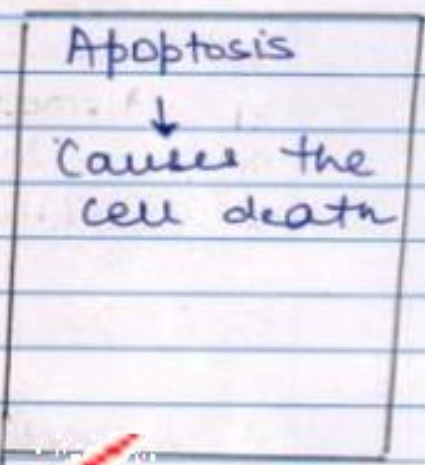 Apoptosis
↓
Causes the
cell death